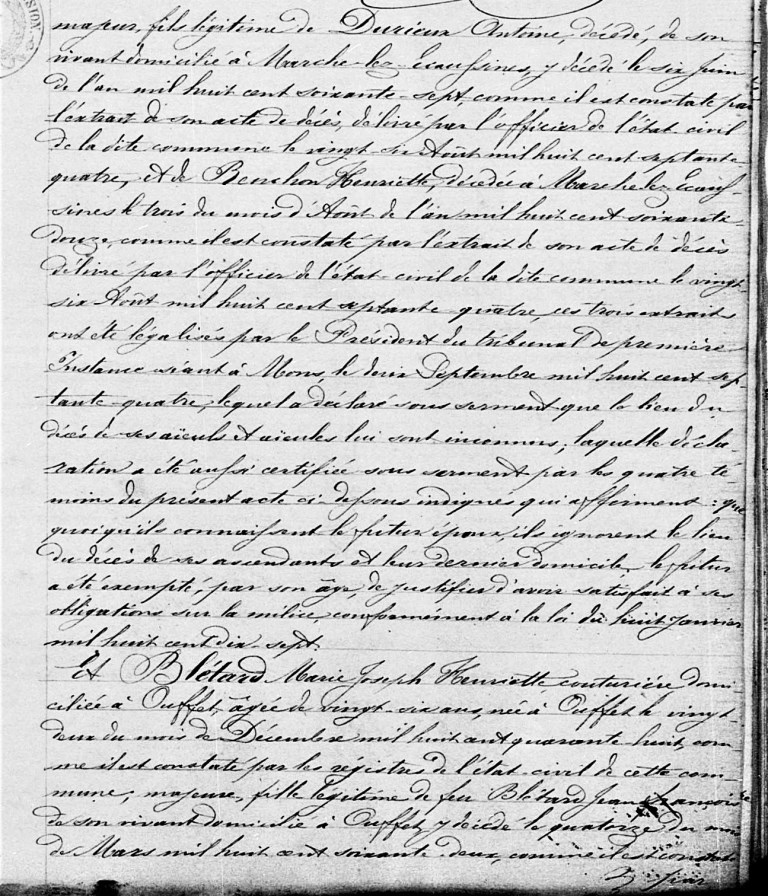 majeur, fils légitime de Durieux Antoine, décédé, de son
vivant domicilié à Marche-lez-Ecaussines, y décédé le six Juin
de l'an mil huit cent soixante-sept, comme il est constaté par
l'extrait de son acte de décès, délivré par l'officier de l'état-civil
de la dite commune le vingt six Août mil huit cent septante
quatre, et de Bouchon Henriette, décédée à Marche-lez-Ecaus-
sines le trois du mois d'Août de l'an mil huit cent soixante
douze, comme il est constaté par l'extrait de son acte de décès
délivré par l'officier de l'état-civil de la dite commune le vingt
six Août mil huit cent septante-quatre, ces trois extraits
ont été légalisés par le Président du tribunal de première
Instance séant à Mons, le deux Septembre mil huit cent sep-
tante-quatre, lequel a déclaré sous serment que le lieu du
décès de ses aïeuls et aïeules lui sont inconnus, laquelle décla-
ration a été aussi certifiée sous serment par les quatre té-
moins du présent acte ci-dessous indiqués qui affirment : que
quoiqu'ils connaissent le futur époux, ils ignorent le lieu
du décès de ses ascendants et leur dernier domicile, le futur
a été exempté, par son âge, de justifier d'avoir satisfait à ses
obligations sur la milice, conformément à la loi du huit Janvier
mil huit cent dix-sept.
Et Blétard Marie Joseph Henriette, couturière, domi-
ciliée à Ouffet, âgée de vingt-six ans, née à Ouffet le vingt-
deux du mois de Décembre mil huit cent quarante-huit, com-
me il est constaté par les régistres de l'état-civil de cette com-
mune, majeure, fille légitime de feu Blétard Jean françois
de son vivant domicilié à Ouffet, y décédé le quatorze du mois
de Mars mil huit cent soixante-deux, comme il est constaté